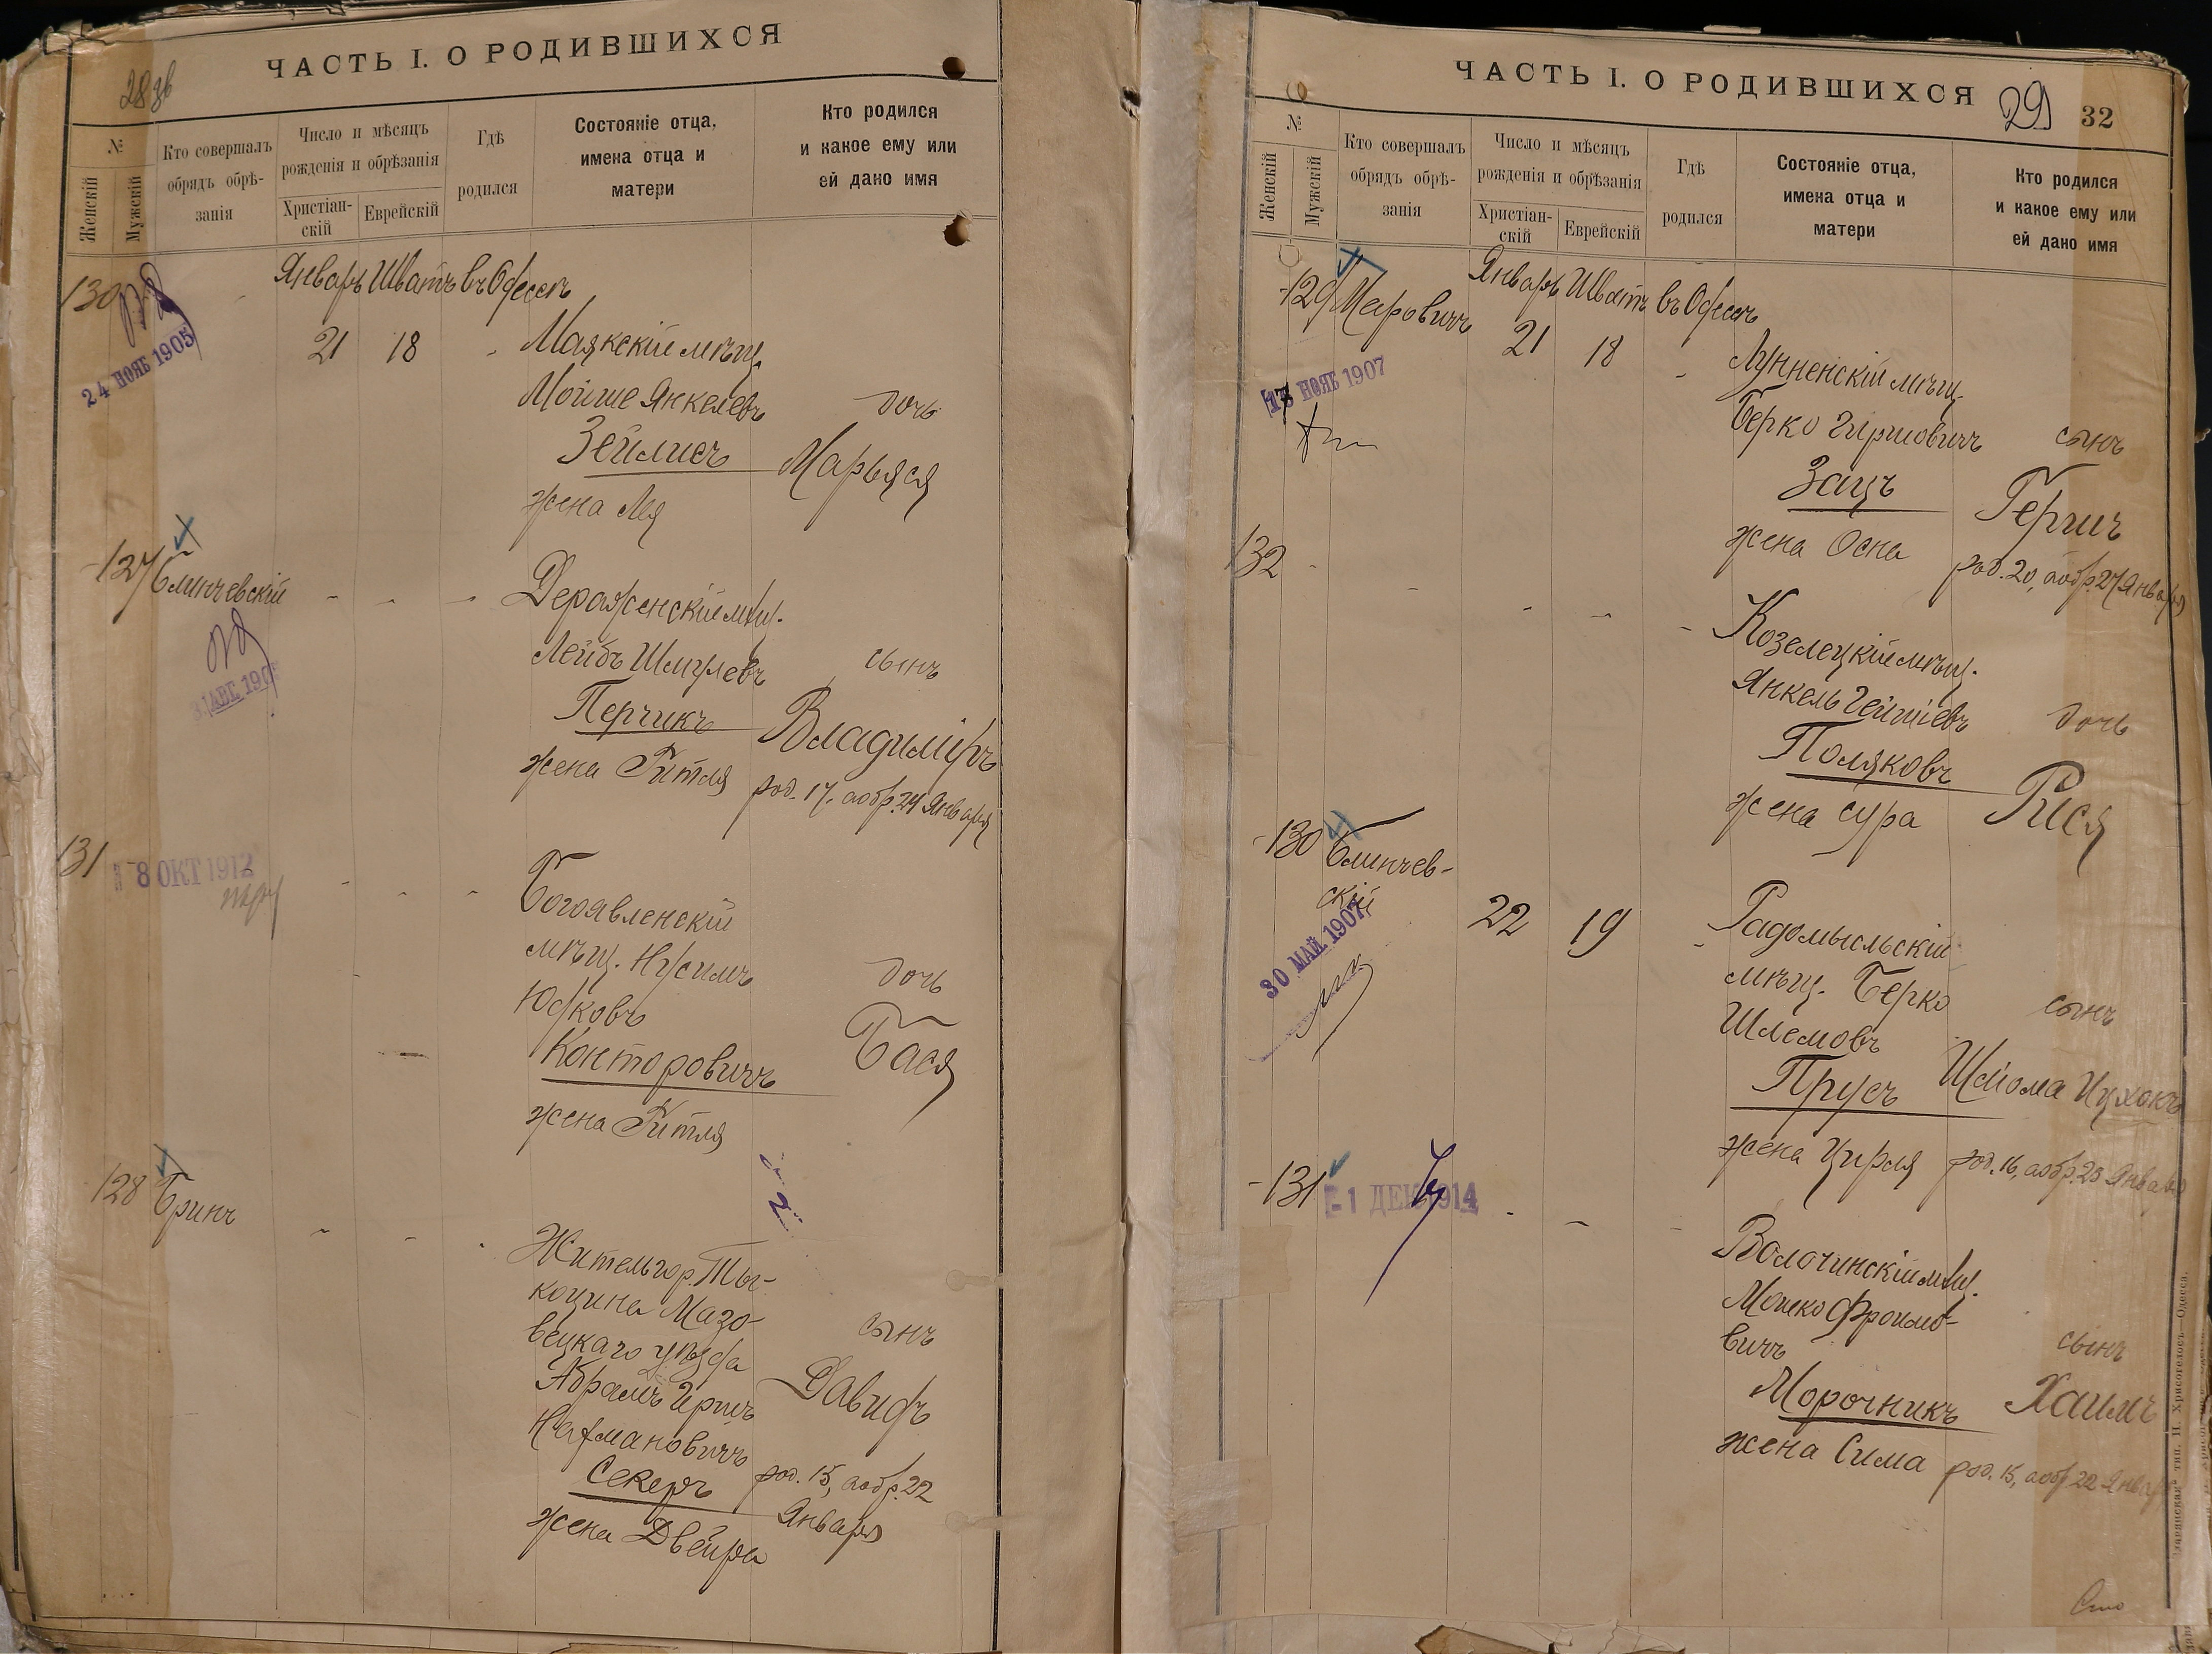 28зв
ЧАСТЬ I. О РОДИВШИХСЯ
№
Женскій
Мужскій
Кто совершалъ
обрядъ обрѣ-
занія
Число и мѣсяцъ
рожденія и обрѣзанія
Христіан-
скій
Еврейскій
Гдѣ
родился
Состояніе отца,
имена отца и
матери
Кто родился
и какое ему или
ей дано имя
130
Январь Шватъ въ Одессѣ
24 НОЯБ 1905
21 18 Маякскій мѣщ.
Мойше Янкелевъ дочь
Зейлисъ Марьяся
жена Лея
127 Блинчевскій
Дераженскій мѣщ.
Лейбъ Шмулевъ сынъ
Перчикъ Владиміръ
жена Рытля род. 17, аобр. 24 Января
131
8 ОКТ 1912
Богоявленскій
мѣщ. Нусимъ дочь
Юсковъ
Конторовичъ Бася
жена Рытля
128 Бринъ
Житель гор. Ты-
коцина Мазо-
вецкаго уѣзда сынъ
Абрамъ Гершъ Давидъ
Нахмановичъ
Секеръ род. 15, аобр. 22
Января
жена Двейра
ЧАСТЬ I. О РОДИВШИХСЯ
29
32
№
Женскій
Мужскій
Кто совершалъ
обрядъ обрѣ-
занія
Число и мѣсяцъ
рожденія и обрѣзанія
Христіан-
скій
Еврейскій
Гдѣ
родился
Состояніе отца,
имена отца и
матери
Кто родился
и какое ему или
ей дано имя
129 Меровичъ
Январь Шватъ въ Одессѣ
НОЯБ 1907
21 18 Лунненскій мѣщ.
Берко Гиршовичъ сынъ
Зацъ Гершъ
жена Осна род. 20, аобр. 27 Января
132
Козелецкій мѣщ.
Янкель Гейшіевъ дочь
Поляковъ
жена Сура Рися
130 Блинчев-
скій
30 МАЙ 1907
22 19 Радомысльскій
мѣщ. Берко сынъ
Шлемовъ
Прусъ Шлома Ицхокъ
жена Цирля род. 16, аобр. 23 Января
131
-1 ДЕК 1914
Волочинскій мѣщ.
Мошко Фроимо-
вичъ сынъ
Морочникъ Хаимъ
жена Сима род. 15, аобр 22 Января
тип. Н. Хрисогелосъ—Одесса.